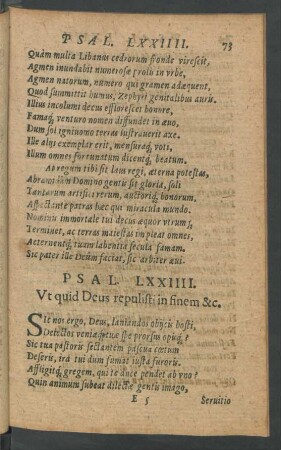 PSAL. LXXIIII. 73
Quàm multa Libanus cedrorum fronde virescit,
Agmen inundabit numerosæ prolis in vrbe,
Agmen natorum, numero qui gramen adæquent,
Quod summittit humus, Zephyri genitalibus auris.
Illius incolumi decus efflorescet honore,
Famaq; venturo nomen diffundet in æuo.
Dum sol igniuomo terras lustrauerit axe.
Ille alijs exemplar erit, mensuraq; voti,
Illum omnes fortunatum dicentq; beatum.
At regum tibi sit laus regi, æterna potestas,
Abramidûm Domino gentis sit gloria, soli
Tantarum artifici rerum, auctoriq; bonorum.
Affectante patras hæc qui miracula mundo.
Nominis immortale tui decus æquor vtrumq;
Terminet, ac terras maiestas impleat omnes,
Aeternentq; tuam labentia secula famam.
Sic pater ille Deûm faciat, sic arbiter æui.
PSAL. LXXIIII.
Vt quid Deus repulisti in finem &c.
SIc nos ergo, Deus, laniandos obijcis hosti,
Deiectos veniæ, tuæ spe prorsus opisq;?
Sic tua pastoris sectantem pascua cœtum
Deseris, ira tui dum fumat iusta furoris.
Affligitq; gregem, qui te duce pendet ab vno?
Quin animum subeat dilectæ gentis imago,
E 5 Seruitio